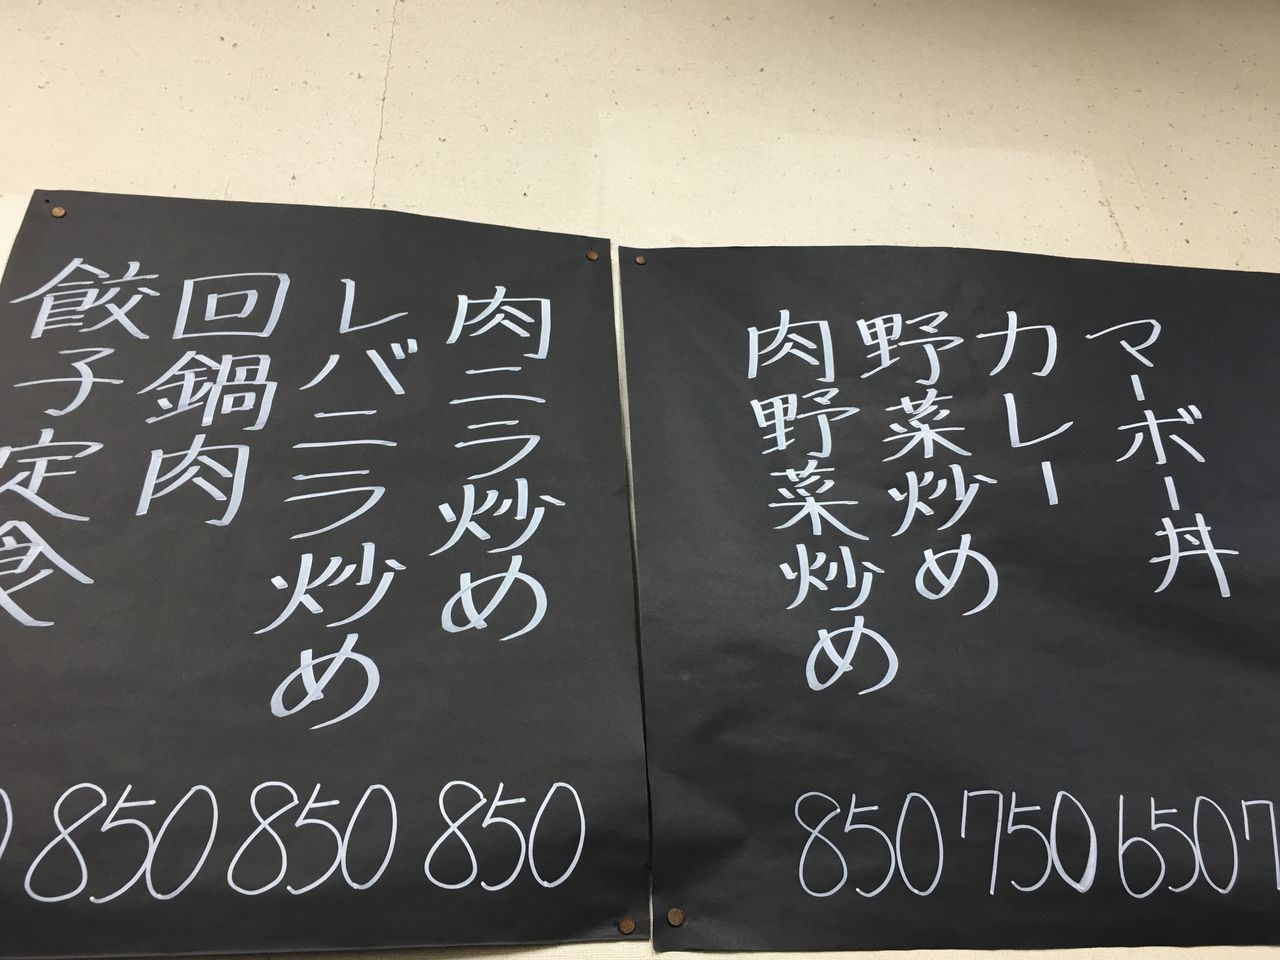 マーボー丼
カレー
650
野菜炒め
750
肉野菜炒め
850
肉ニラ炒め
850
レバニラ炒め
850
回鍋肉
850
餃子定食